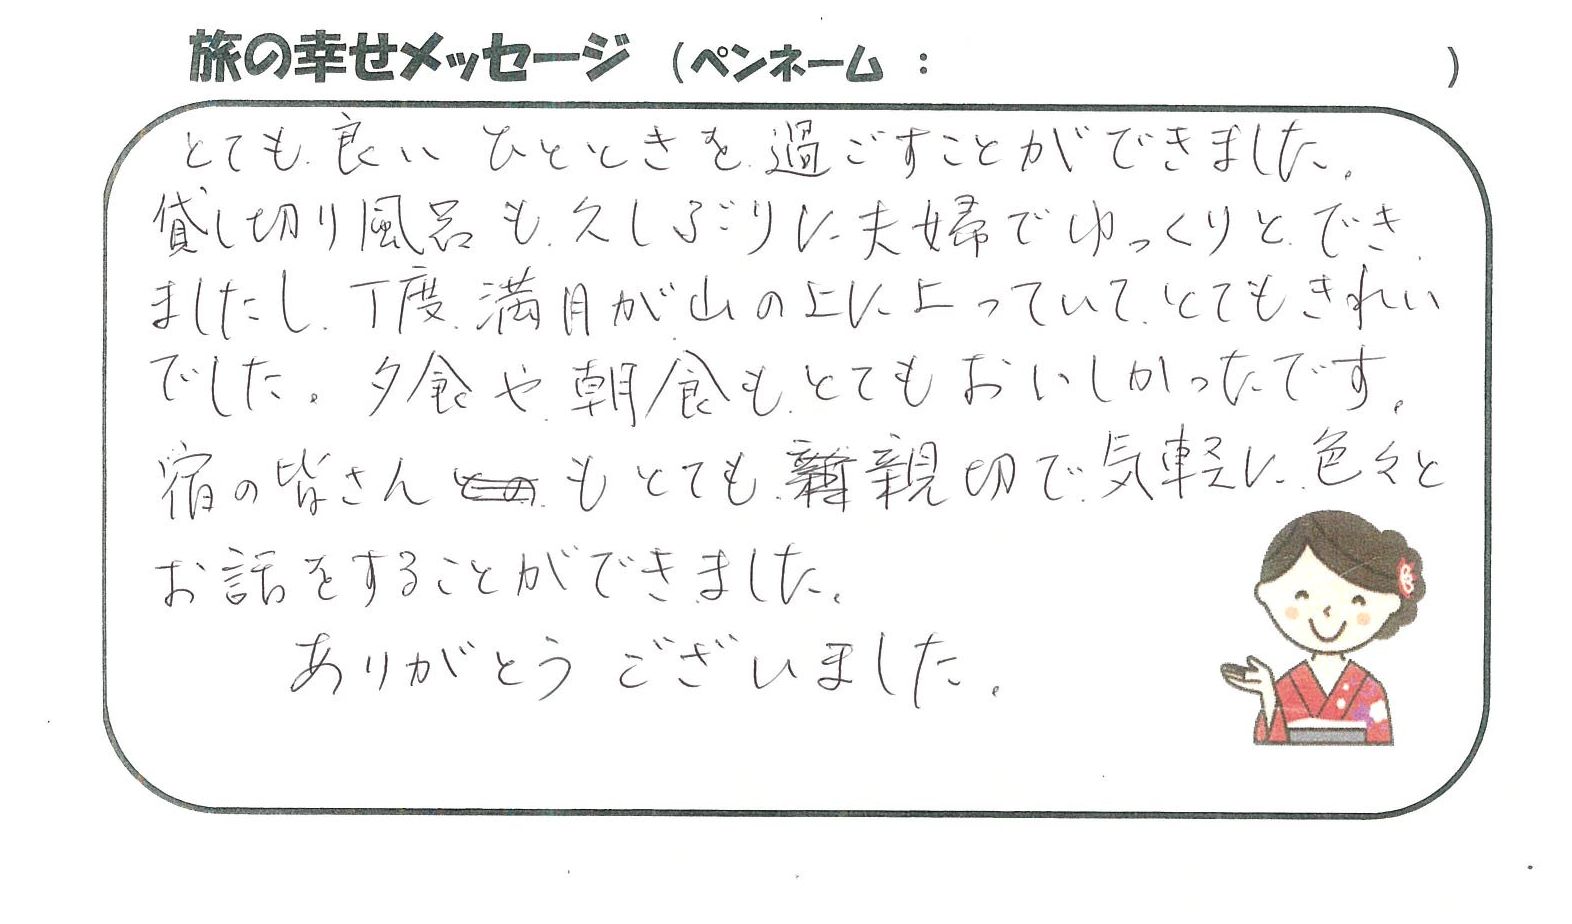 旅の幸せメッセージ (ペンネーム : )
とても良い ひとときを過ごすことができました。
貸し切り風呂も久しぶりに夫婦でゆっくりとでき
ましたし、丁度満月が山の上に上っていて、とてもきれい
でした。夕食や朝食もとてもおいしかったです。
宿の皆さんもとても親切で気軽に色々と
お話をすることができました。
ありがとうございました。